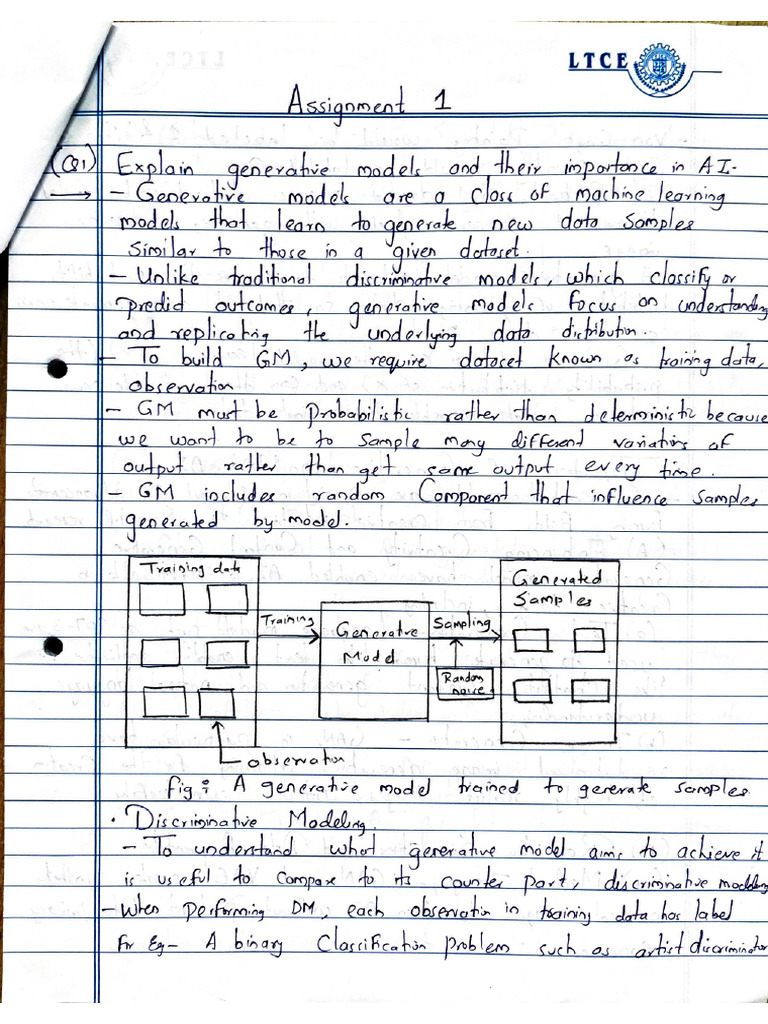 LTCE
Assignment 1
(Q1) Explain generative models and their importance in AI-
→ - Generative models are a class of machine learning
models that learn to generate new data samples
similar to those in a given dataset.
- Unlike traditional discriminative models, which classify or
predid outcomes, generative models focus on understanding
and replicating the underlying data distribution.
- To build GM, we require dataset known as training data,
observation
- GM must be probabilistic rather than deterministic because
we want to be to sample many different variations of
output rather than get same output every time.
- GM includes random component that influence samples
generated by model.
Training data
Training
Generative
Model
Sampling
Random
noise
Generated
Samples
observation
Fig: A generative model trained to generate samples
• Discriminative Modeling.
- To understand what generative model aims to achieve it
is useful to compare to its counter part, discriminative modeling
- When performing DM, each observation in training data has label
for Eg- A binary classification problem such as artist discriminator